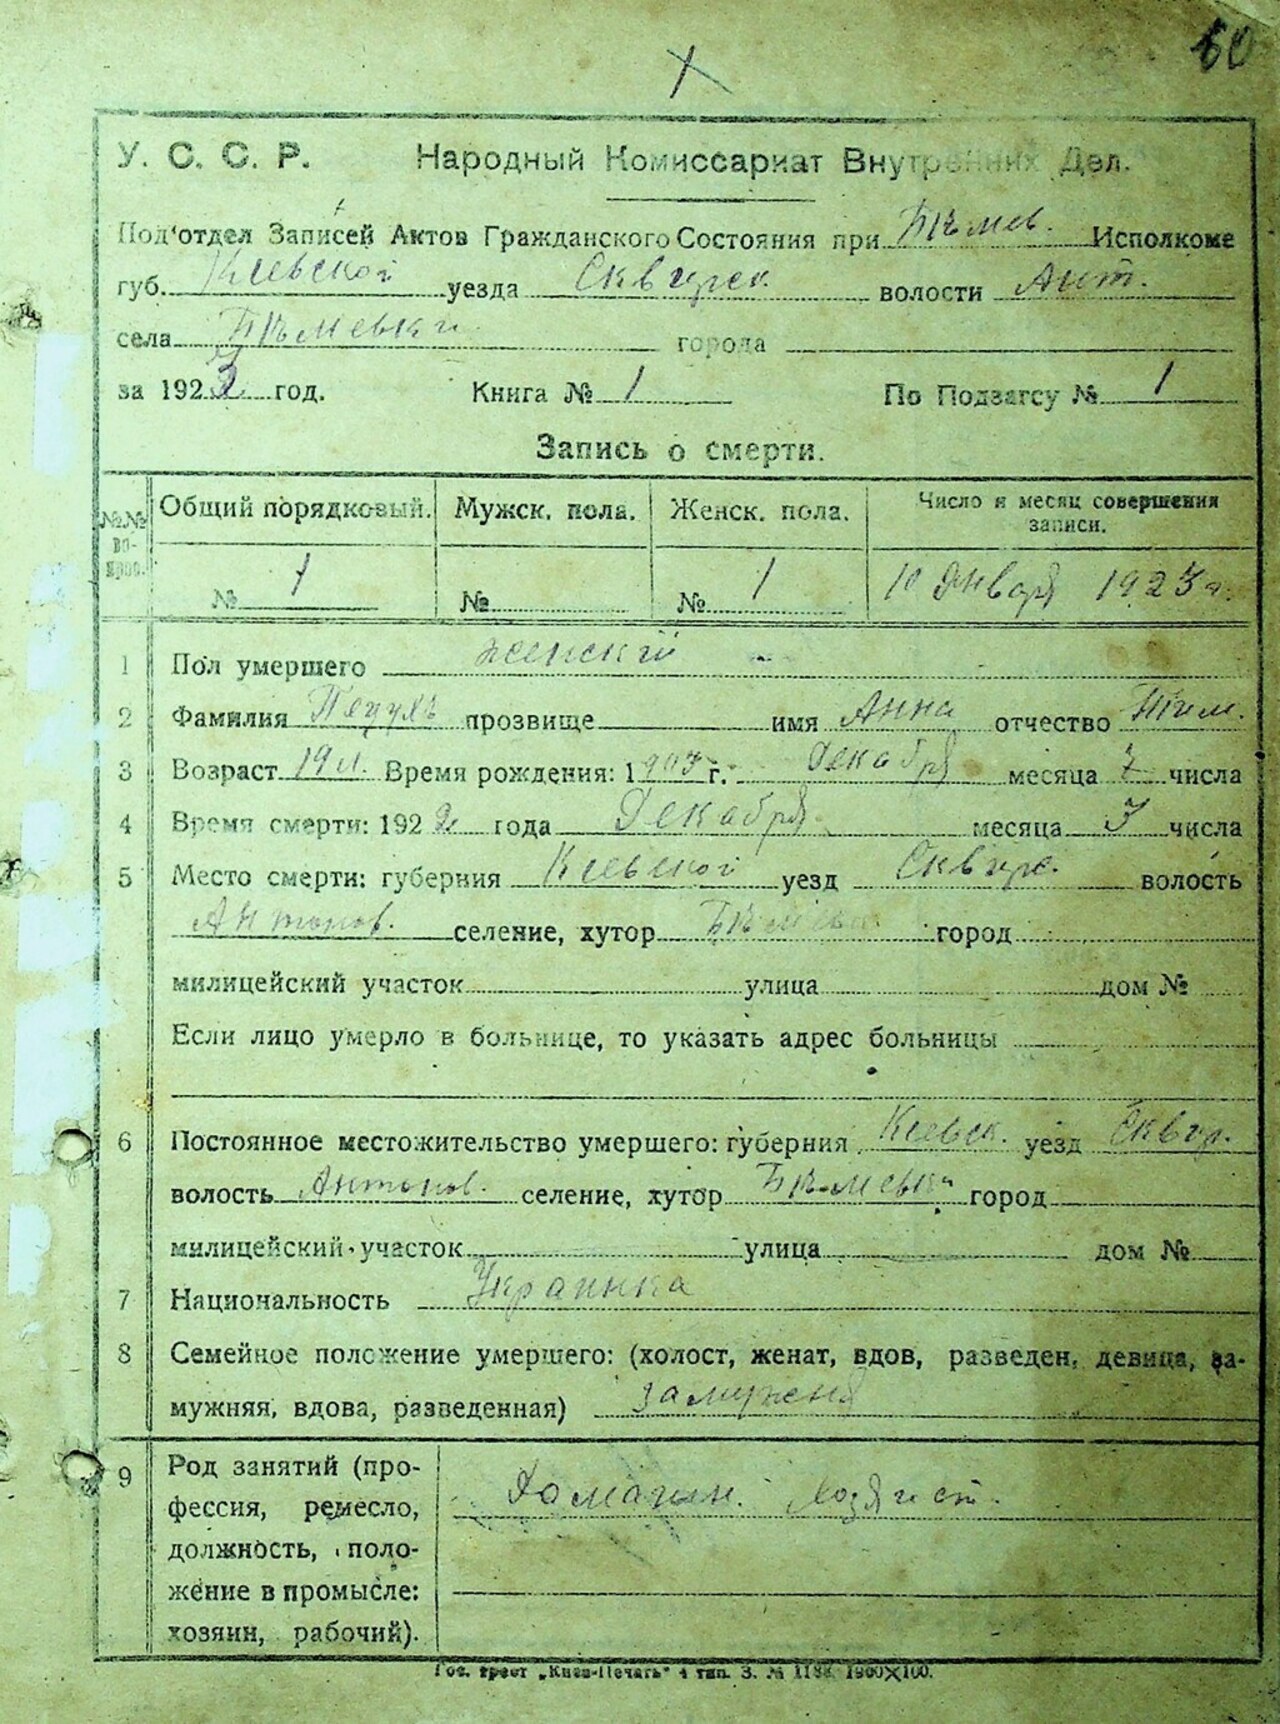 60
У. С. С. Р. Народный Комиссариат Внутренних Дел.
Под'отдел Записей Актов Гражданского Состояния при Исполкоме
губ. Киевской уезда Сквирск. волости Ант.
села города
за 1923 год. Книга № 1 По Подзагсу № 1
Запись о смерти.
№№ во-прос. Общий порядковый. Мужск. пола. Женск. пола. Число и месяц совершения записи.
№ 1 № № 1 10 Января 1923 г.
1 Пол умершего женский
2 Фамилия прозвище имя Анна отчество Тим.
3 Возраст 19 л. Время рождения: 1903 г. Декабря месяца 7 числа
4 Время смерти: 1922 года Декабря месяца 3 числа
5 Место смерти: губерния Киевской уезд Сквирс. волость
Антонов. селение, хутор город
милицейский участок улица дом №
Если лицо умерло в больнице, то указать адрес больницы
6 Постоянное местожительство умершего: губерния Киевск. уезд Сквир.
волость Антонов. селение, хутор город
милицейский участок улица дом №
7 Национальность Украинка
8 Семейное положение умершего: (холост, женат, вдов, разведен, девица, за-
мужняя, вдова, разведенная) замужняя
9 Род занятий (про-
фессия, ремесло,
должность, поло-
жение в промысле:
хозяин, рабочий).
Домашн. хозяйст.
Гос. трест „Киев-Печать" 4 тип. З. № 1188 1900×100.